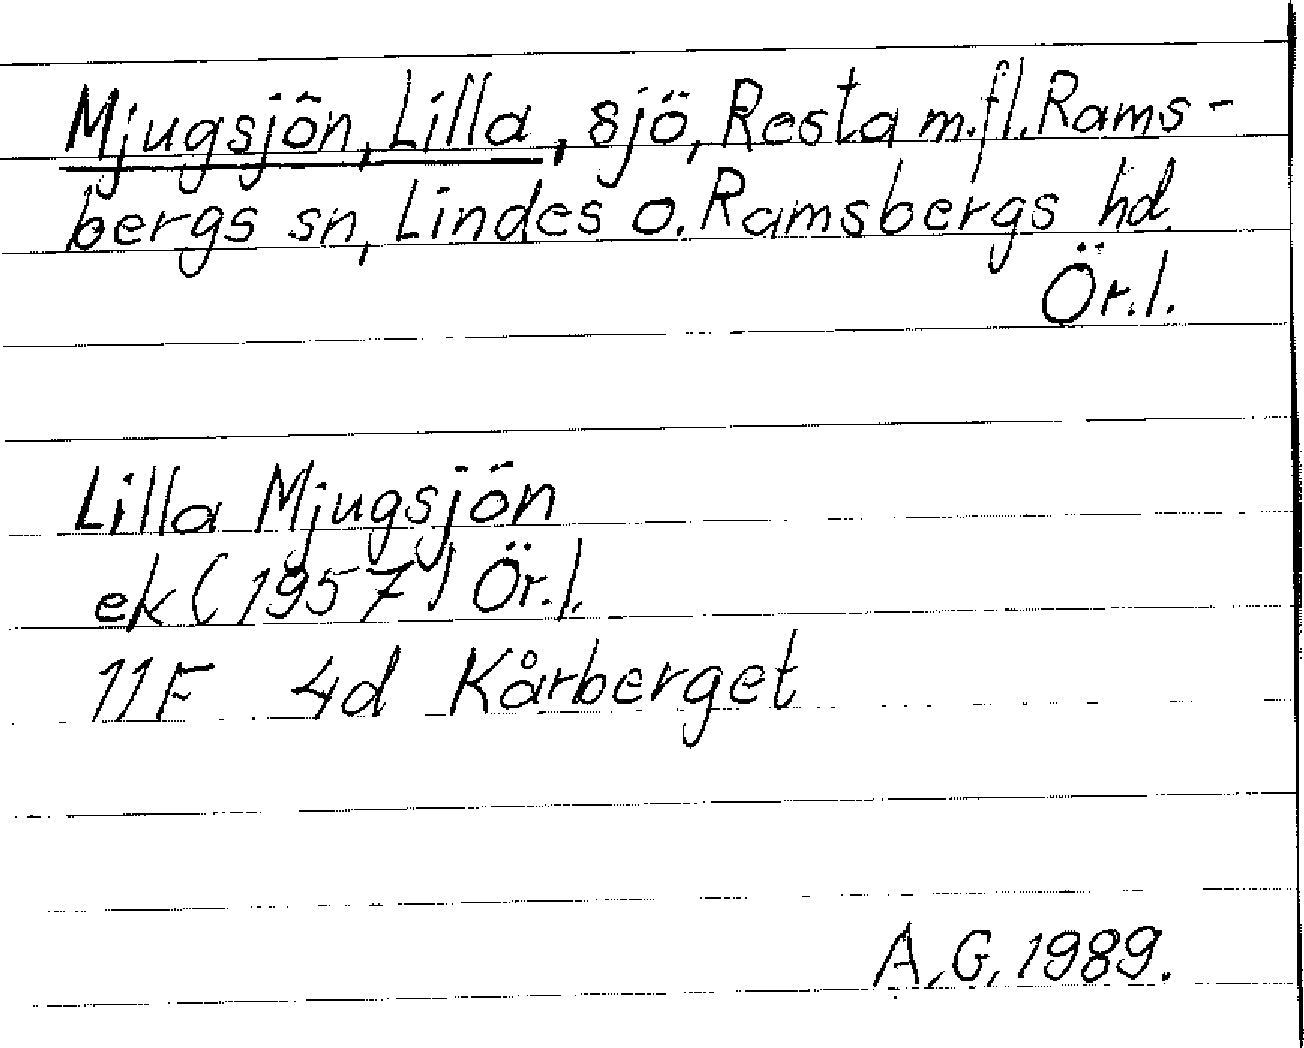 Mjugsjön, Lilla, sjö, Resta m.fl. Rams-
bergs sn, Lindes o. Ramsbergs hd.
Ör.l.
Lilla Mjugsjön
ek (1957) Ör.l.
11F 4d Kårberget
A.G. 1989.